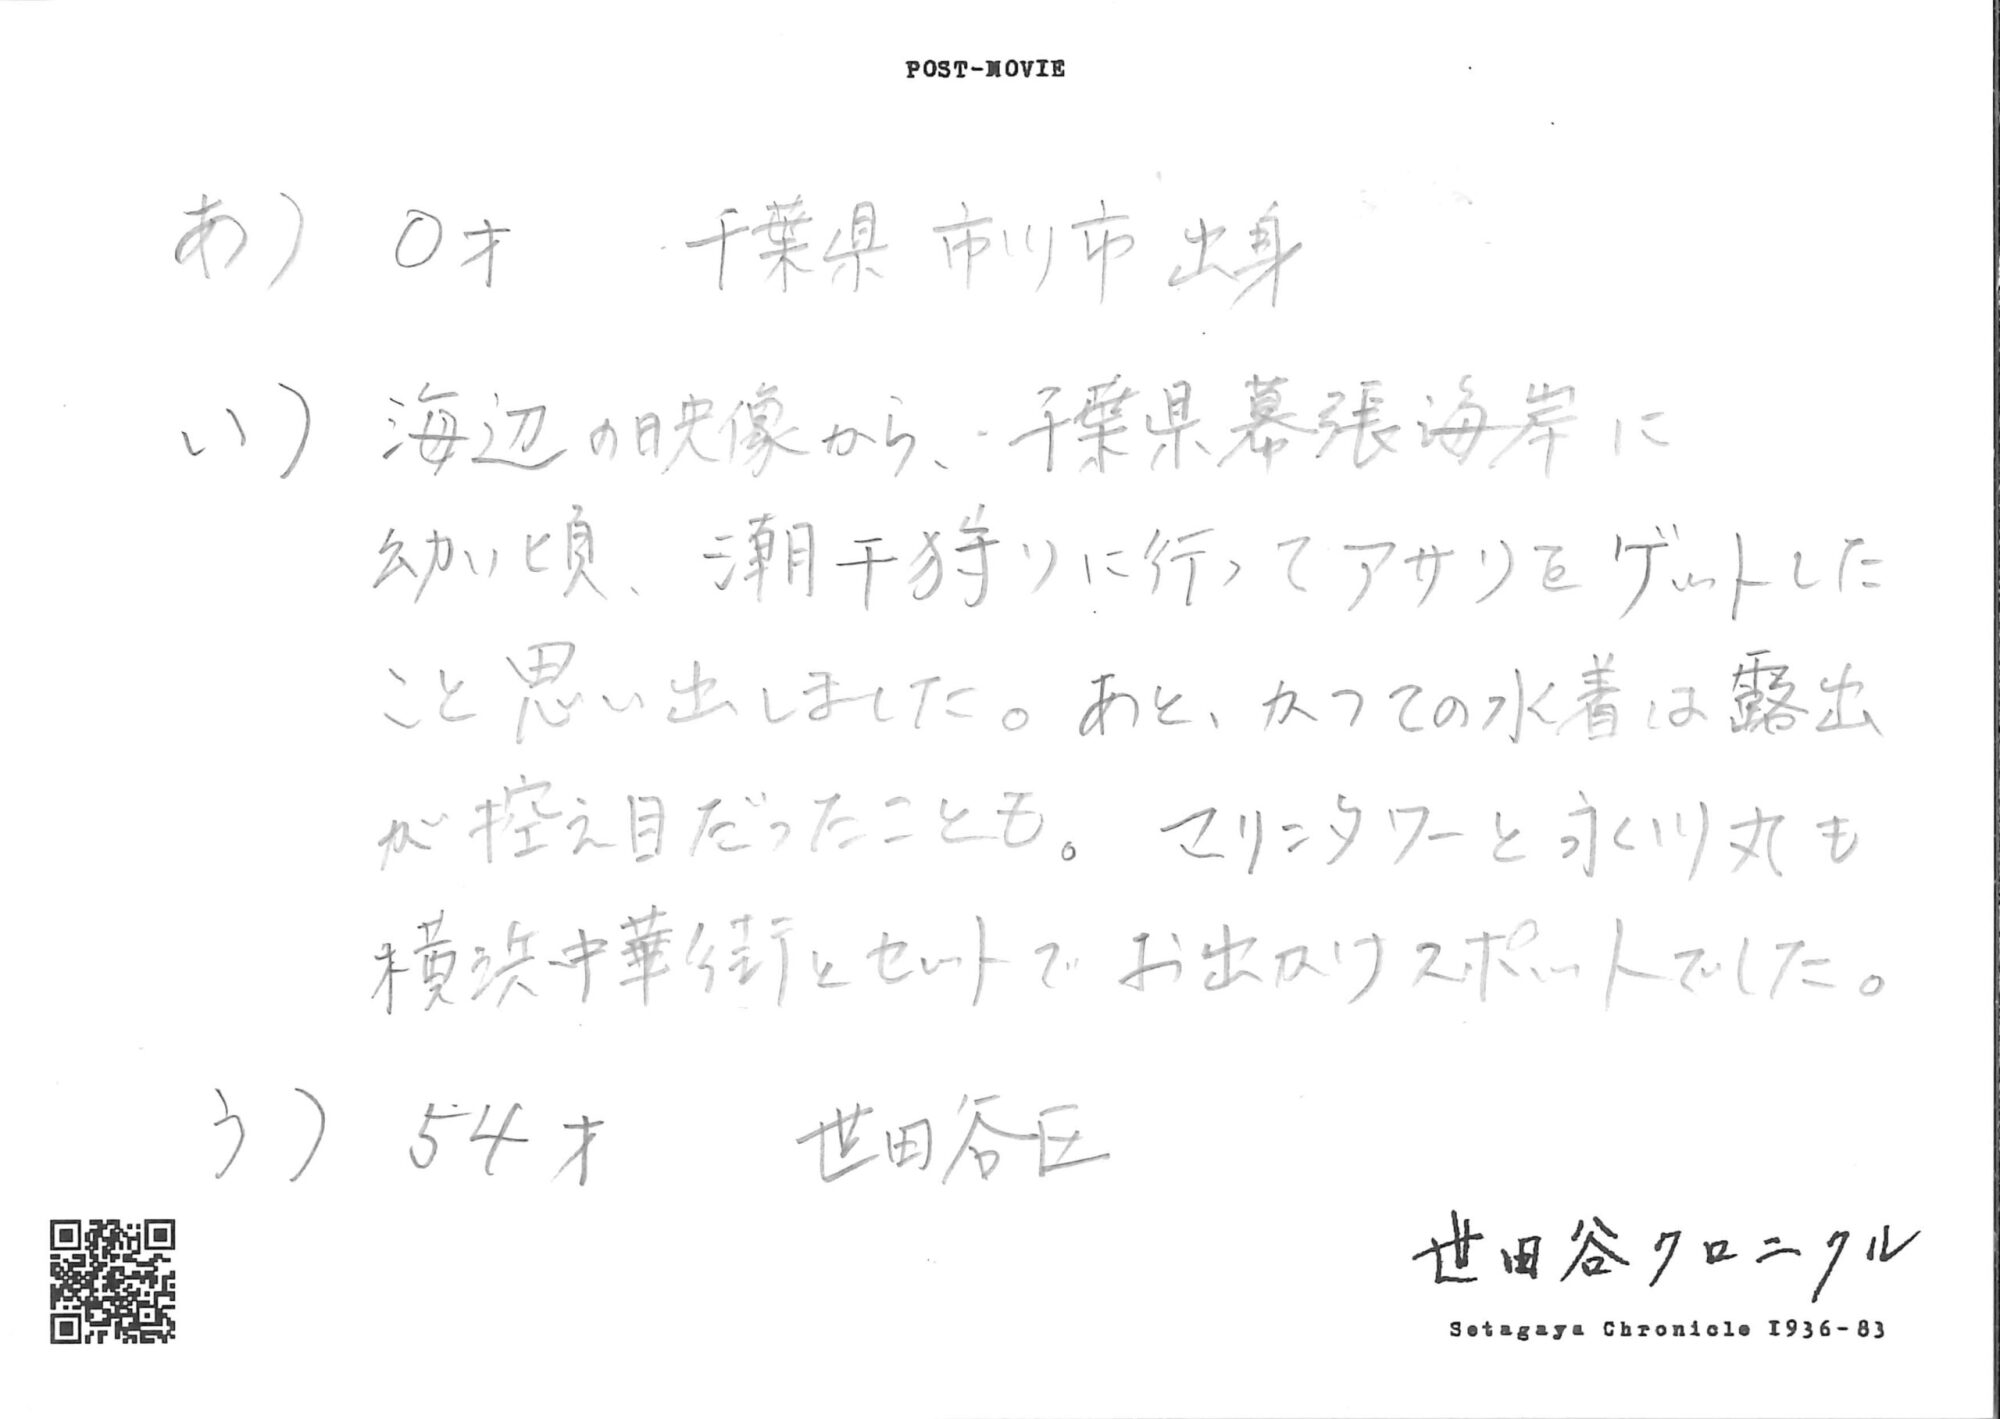 POST-MOVIE
あ) 0才 千葉県 市川市 出身
い) 海辺の映像から、千葉県幕張海岸に
幼い頃、潮干狩りに行ってアサリをゲットした
こと思い出しました。あと、かつての水着は露出
が控え目だったことも。 マリンタワーと氷川丸も
横浜中華街とセットでお出かけスポットでした。
う) 54才 世田谷区
世田谷クロニクル
Setagaya Chronicle 1936-83